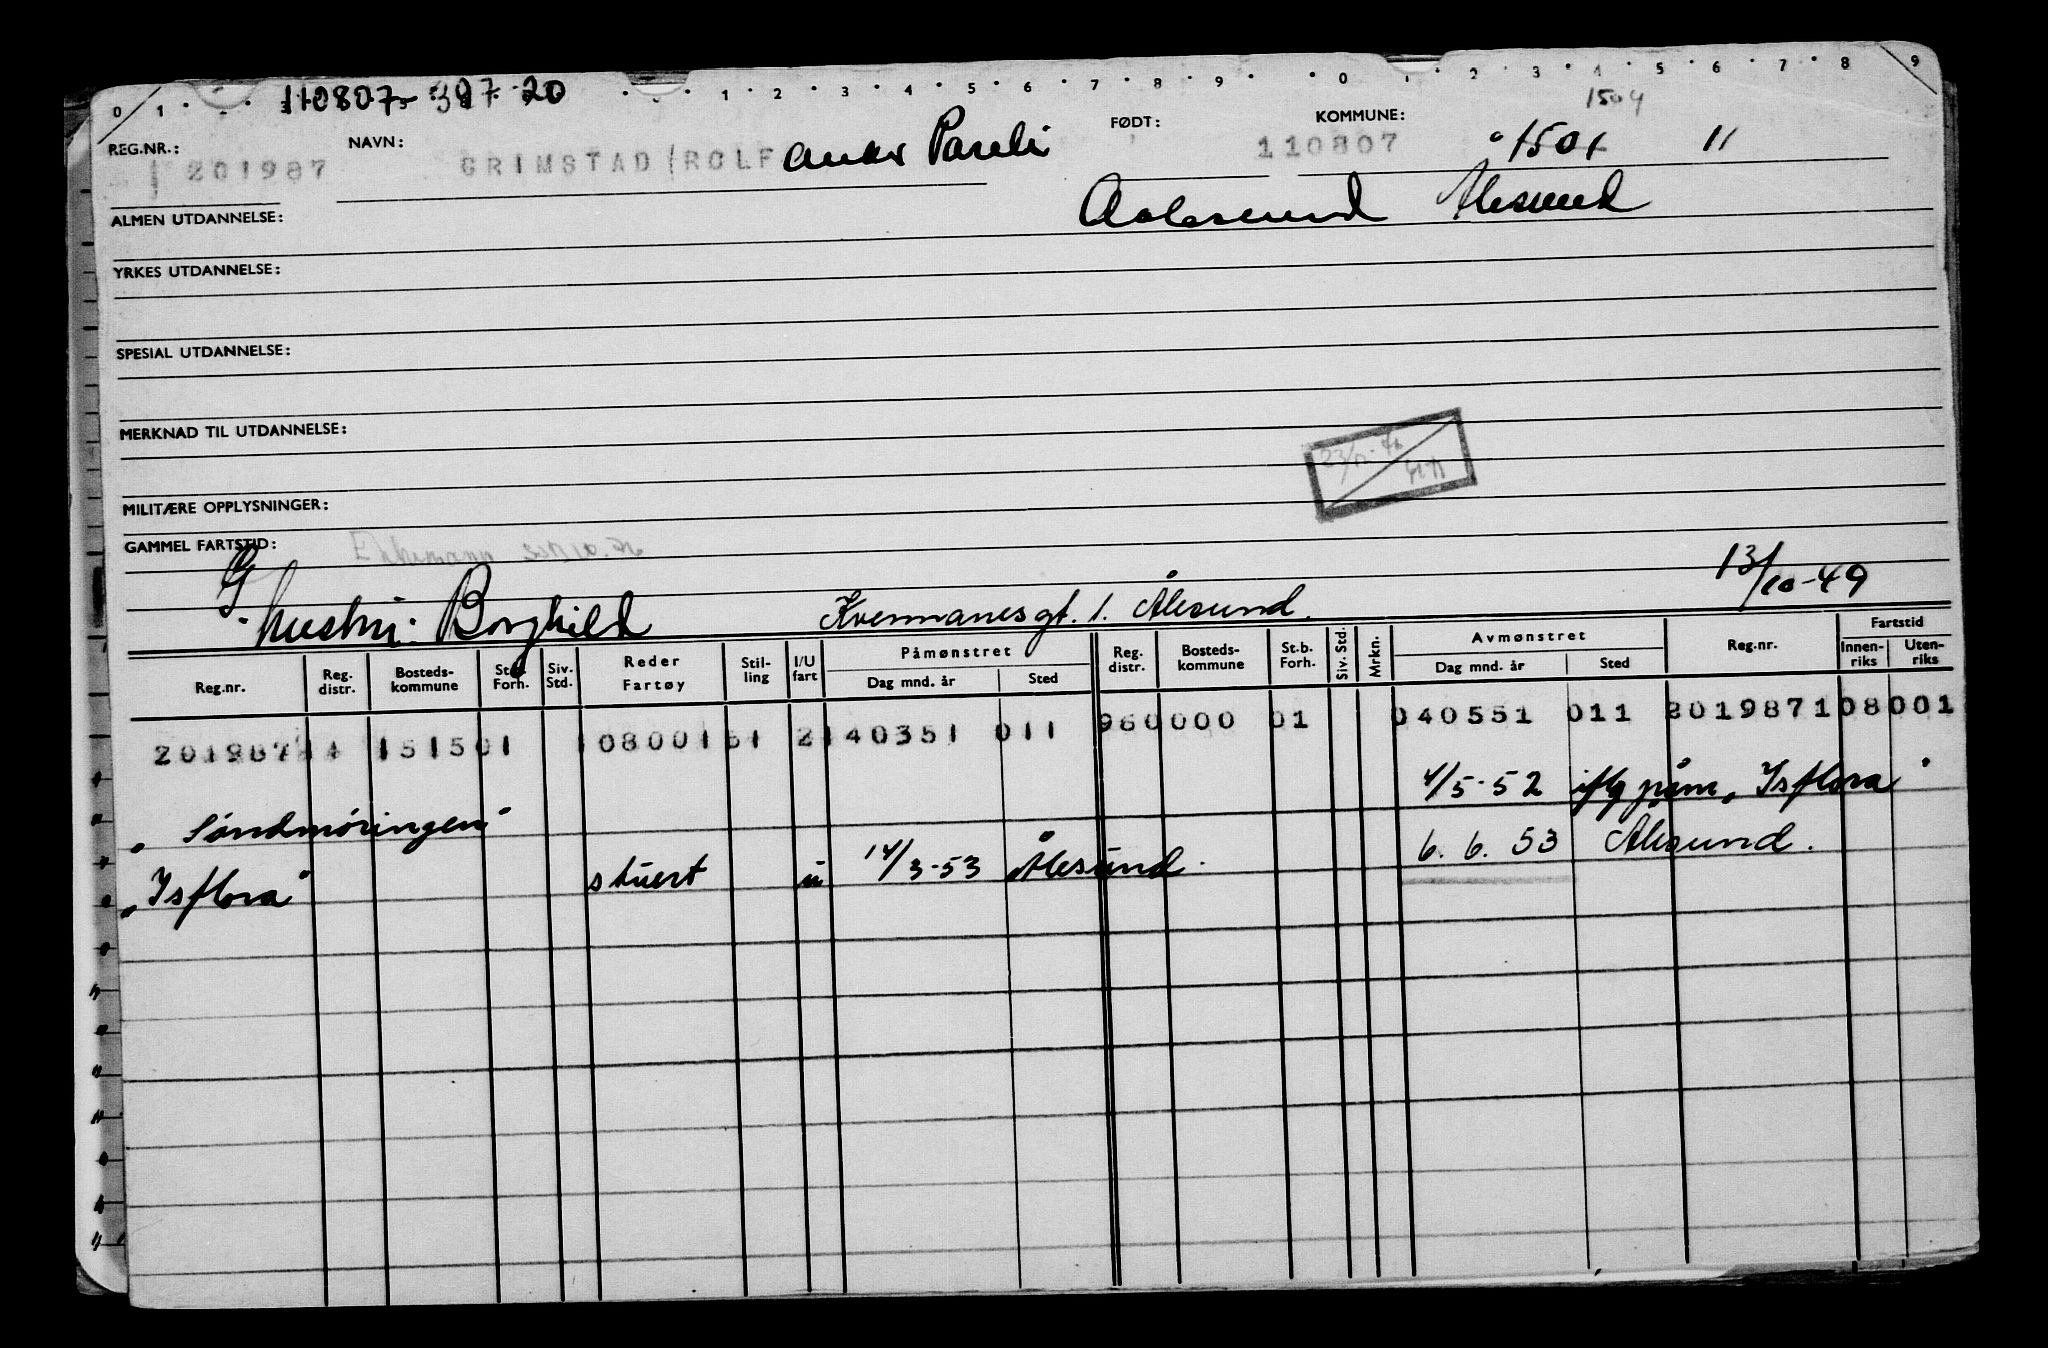 0 1 1 2 3 4 5 6 7 8 9 0 1 2 3 4 5 6 7 8 9
110807- 397 20
1504
REG.NR.: NAVN: FØDT: KOMMUNE:
201987 GRIMSTAD ROLF 110807 1501 11
ALMEN UTDANNELSE: Aalesund Ålesund
YRKES UTDANNELSE:
SPESIAL UTDANNELSE:
MERKNAD TIL UTDANNELSE:
MILITÆRE OPPLYSNINGER:
GAMMEL FARTSTID:
G. hustru: Borghild Kvennanesgt. 1. Ålesund. 13/10-49
Reg.nr. Reg. distr. Bosteds- kommune St.b. Forh. Siv. Std. Reder Fartøy Stil- ling I/U fart Påmønstret Dag mnd. år Sted Reg. distr. Bosteds- kommune St.b. Forh. Siv. Std. Mrkn. Avmønstret Dag mnd. år Sted Reg.nr. Fartstid Innen- riks Uten- riks
151501 08001 51 2 140351 011 960000 01 040551 011 201987108001
"Søndmøringen" 4/5-52 iflg påm "Isflora"
"Isflora" stuert u 14/3-53 Ålesund. 6.6.53 Ålesund.